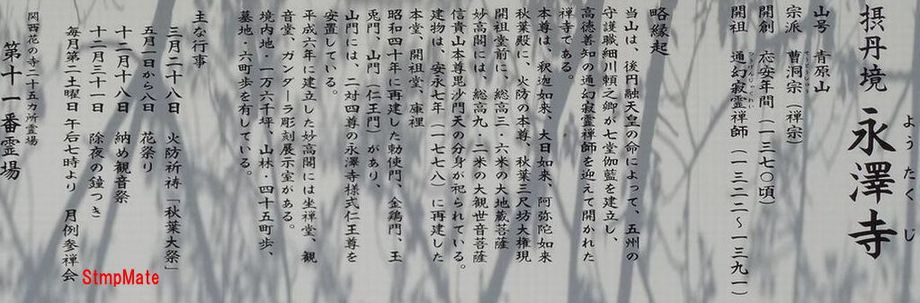 摂丹境 永澤寺
ようたくじ
山号 青原山
宗派 曹洞宗（禅宗）
開創 応安年間（一三七〇頃）
開祖 通幻寂霊禅師（一三二二～一三九一）
つうげんじゃくれい
略縁起
当山は、後円融天皇の命によって、五州の
守護職細川頼之卿が七堂伽藍を建立し、
高徳善知の通幻寂霊禅師を迎えて開かれた
禅寺である。
本尊は、釈迦如来、大日如来、阿弥陀如来
秋葉殿に、火防の本尊、秋葉三尺坊大権現
開祖堂前に、総高三・六米の大地蔵菩薩
妙高閣には、総高九・二米の大観世音菩薩
信貴山本尊毘沙門天の分身が祀られている。
建物は、安永七年（一七七八）に再建した
本堂、開祖堂、庫裡
昭和四十年に再建した勅使門、金鶏門、玉
兎門、山門（仁王門）があり、
山門には、二対四尊の永澤寺様式仁王尊を
安置している。
平成六年に建立した妙高閣には坐禅堂、観
音堂、ガンダーラ彫刻展示室がある。
境内地・一万六千坪、山林・四十五町歩、
墓地・六町歩を有している。
主な行事
三月二十八日 火防祈祷「秋葉大祭」
五月一日から八日 花祭り
十二月十八日 納め観音祭
十二月三十一日 除夜の鐘つき
毎月第二土曜日 午後七時より 月例参禅会
関西花の寺二十五カ所霊場
第十一番霊場
StmpMate